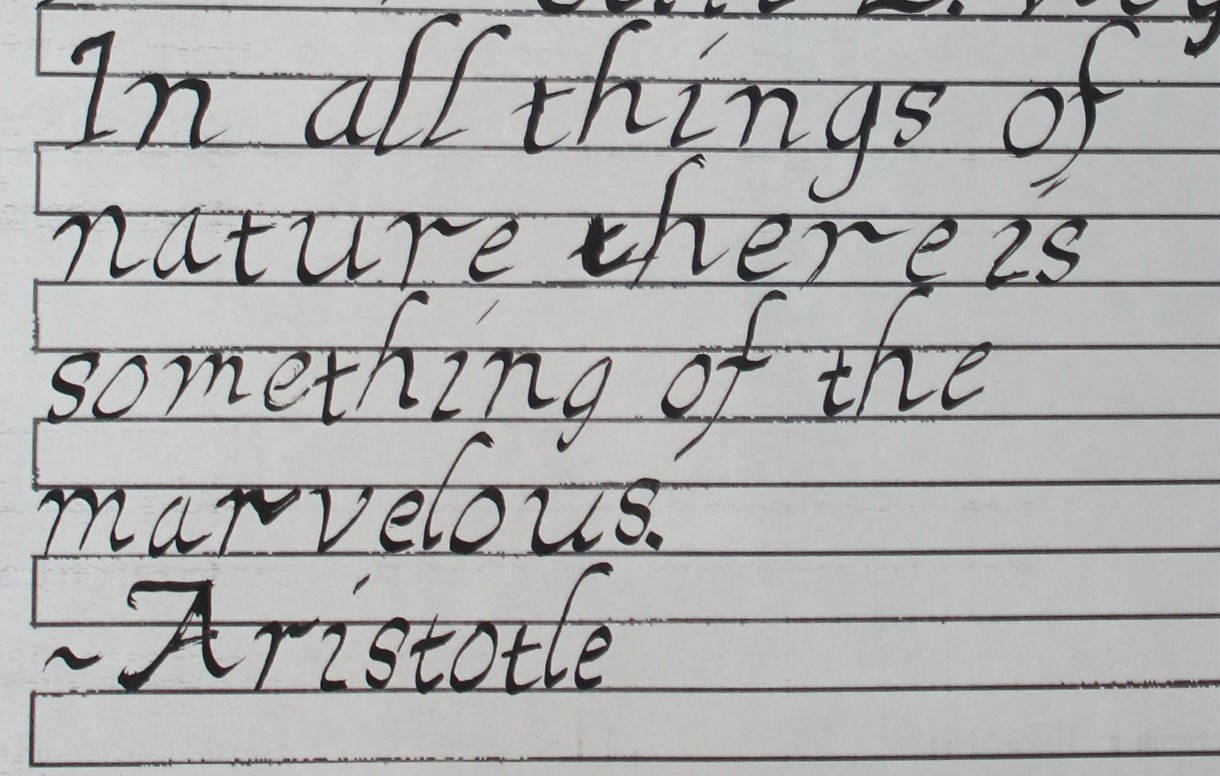 In all things of
nature there is
something of the
marvelous.
~Aristotle